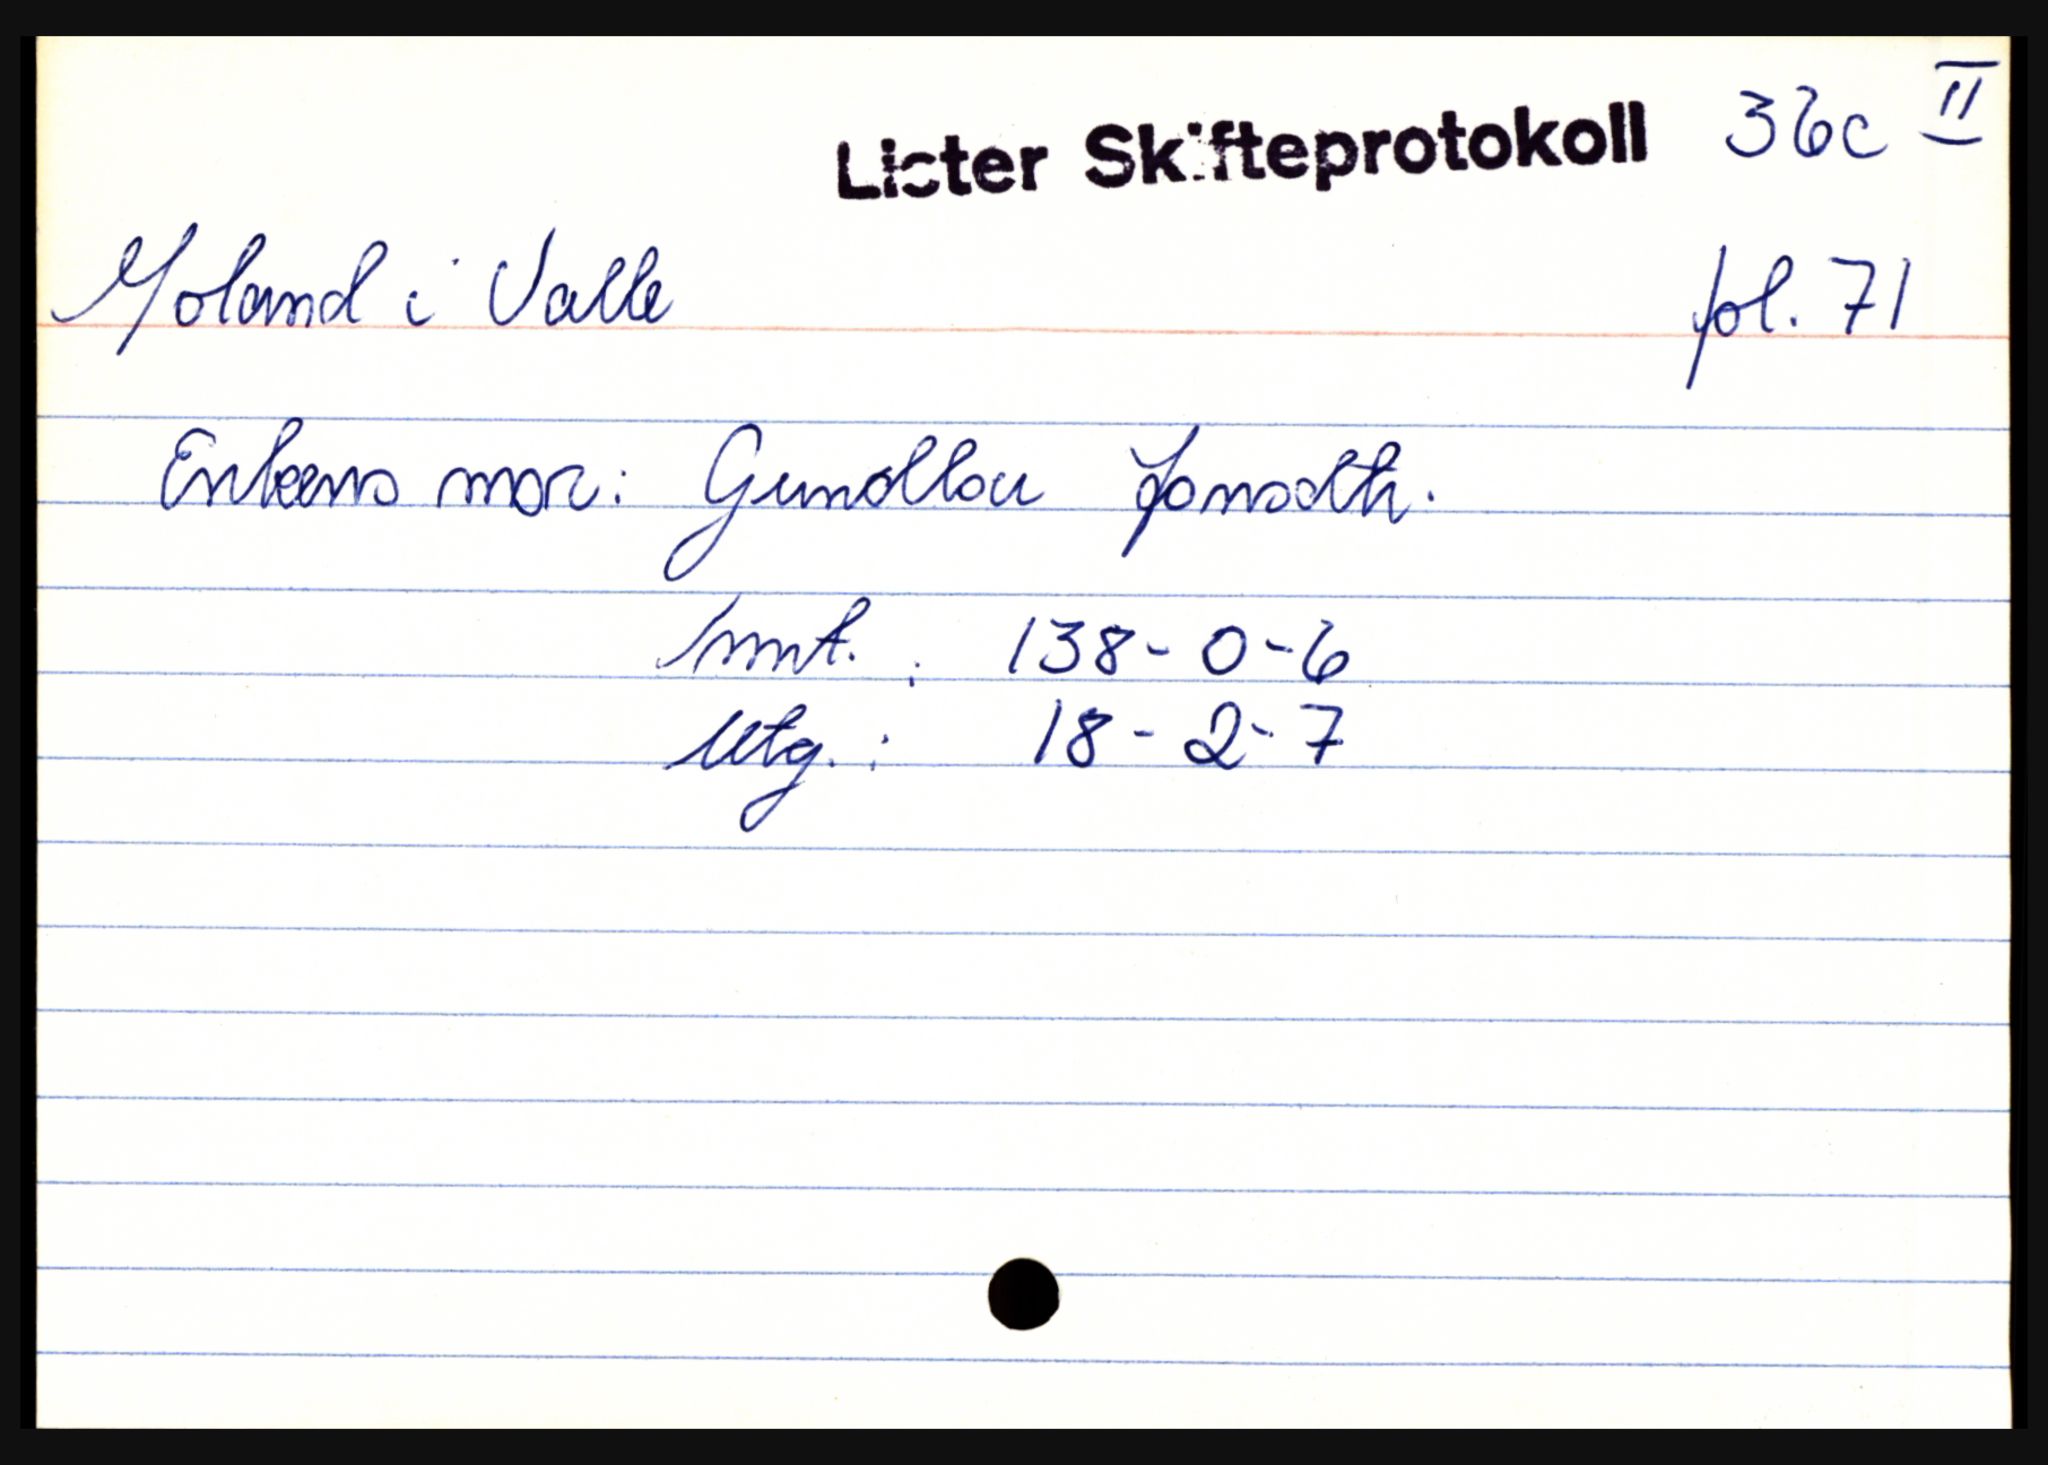 Lister Skifteprotokoll 36c II
Moland i Valle fol. 71
Enkens mor: Gundlou Jonsdtr.
Innt. : 138-0-6
Utg. : 18-2-7